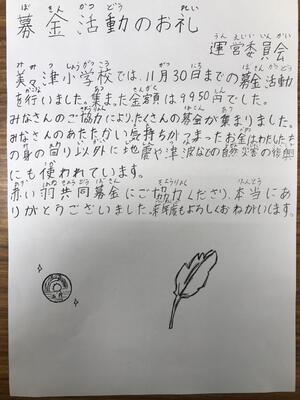 募金活動のお礼
運営委員会
美々津小学校では、11月30日までの募金活動
を行いました。集まった金額は9950円でした。
みなさんのご協力により、たくさんの募金が集まりました。
みなさんのあたたかい気持ちがつまったお金はわたしたち
の身の回り以外に地震や津波などの自然災害の復興
にも使われています。
赤い羽共同募金にご協力くださり、本当にあ
りがとうございました。来年度もよろしくおねがいします。